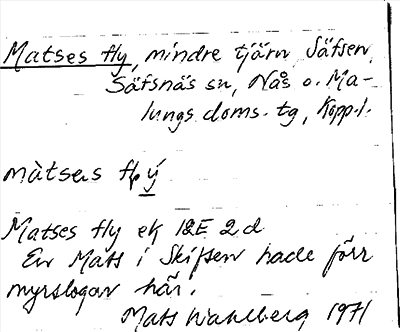 Matses fly, mindre tjärn Säfsen,
Säfsnäs sn, Nås o. Ma-
lungs doms. tg, Kopp.l.
màtsas flyý
Matses fly ek 12E 2d
En Mats i Skifsen hade förr
myrslogan här.
Mats Wahlberg 1971